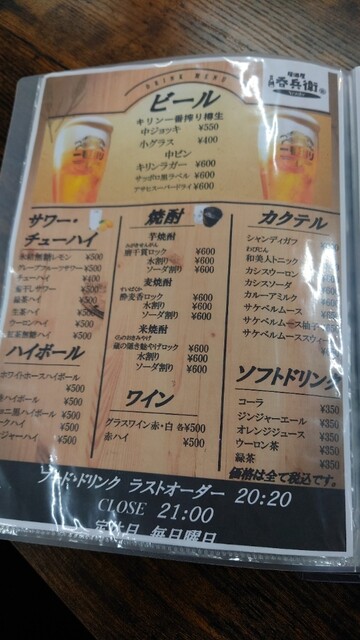 DRINK MENU
居酒屋
呑兵衛
ビール
キリン一番搾り樽生
中ジョッキ ¥550
小グラス ¥400
中ビン
キリンラガー ¥600
サッポロ黒ラベル ¥600
アサヒスーパードライ ¥600
サワー・
チューハイ
無糖レモン ¥500
グレープフルーツサワー ¥500
チューハイ ¥400
梅干しサワー ¥500
緑茶ハイ ¥500
生茶ハイ ¥500
ウーロンハイ ¥500
紅茶無糖ハイ ¥500
ハイボール
ホワイトホースハイボール
¥500
ハイボール ¥500
ハイ ¥500
ジャーハイ ¥500
焼酎
芋焼酎
ロック ¥600
水割り ¥600
ソーダ割り ¥600
麦焼酎
酔麦香ロック ¥600
水割り ¥600
ソーダ割り ¥600
米焼酎
蔵の隠き魅やげロック ¥600
水割り ¥600
ソーダ割り ¥600
ワイン
グラスワイン赤・白 各¥500
赤ハイ ¥500
カクテル
シャンディガフ
和美人トニック
カシスウーロン
カシスソーダ
カルーアミルク
サケベルムース
サケベルムース柚子
サケベルムーススウィート
ソフトドリンク
コーラ ¥350
ジンジャーエール ¥350
オレンジジュース ¥350
ウーロン茶 ¥350
緑茶 ¥350
価格は全て税込です。
フード・ドリンク ラストオーダー 20:20
CLOSE 21:00
定休日 毎日曜日